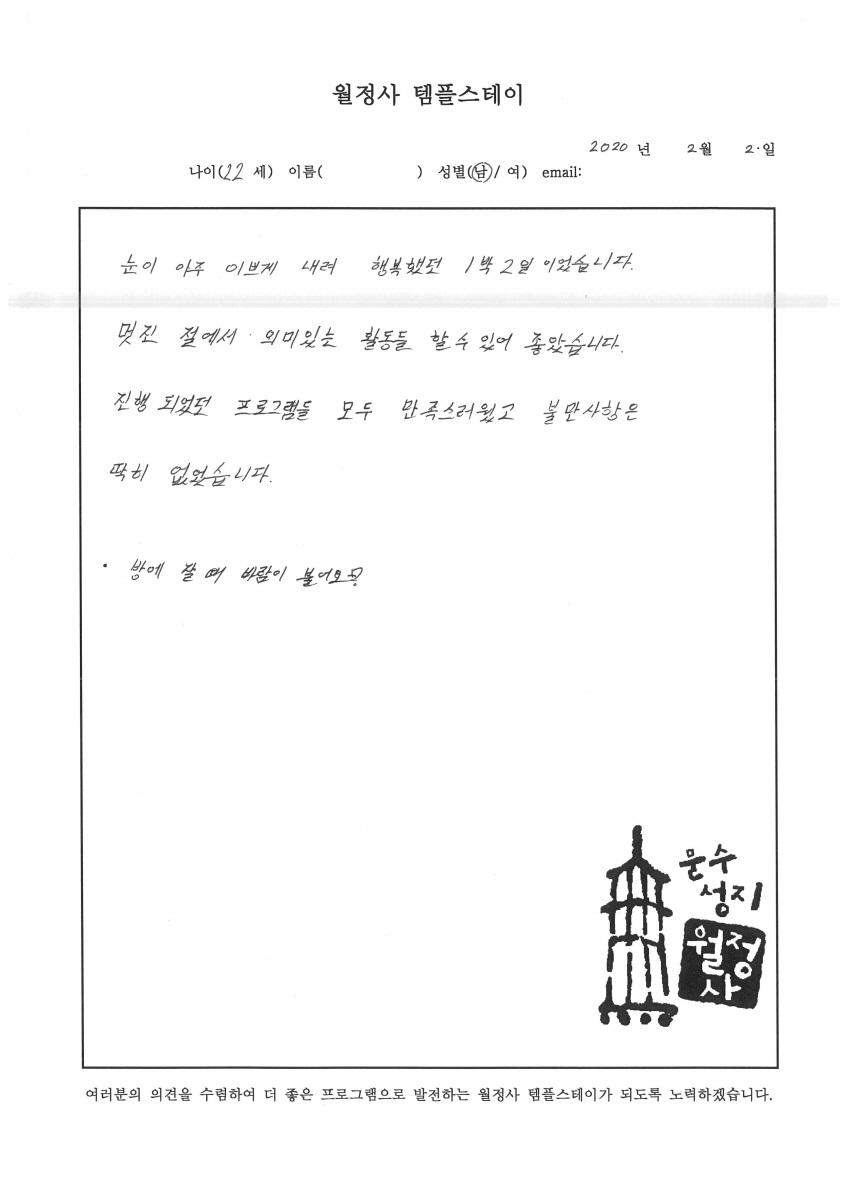 월정사 템플스테이
2020 년 2월 2.일
나이(22 세) 이름( ) 성별(남/ 여) email:
눈이 아주 이쁘게 내려 행복했던 1박 2일 이었습니다.
멋진 절에서 의미있는 활동들 할 수 있어 좋았습니다.
진행 되었던 프로그램들 모두 만족스러웠고 불만사항은
딱히 없었습니다.
· 방에 잘 때 바람이 불어오공
문수
성지
월정
사
여러분의 의견을 수렴하여 더 좋은 프로그램으로 발전하는 월정사 템플스테이가 되도록 노력하겠습니다.